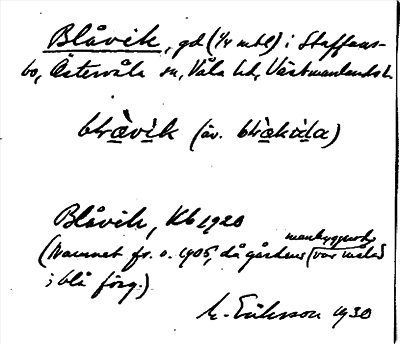 Blåvik, gd (1/4 mtl) i Staffans-
bo, Östervåla sn, Våla hd, Västmanlands l.
Blåvik, Kb 1920
(Namnet fr. o. 1905, då gårdens manbyggnad var målad
i blå färg.)
M. Eriksson 1930